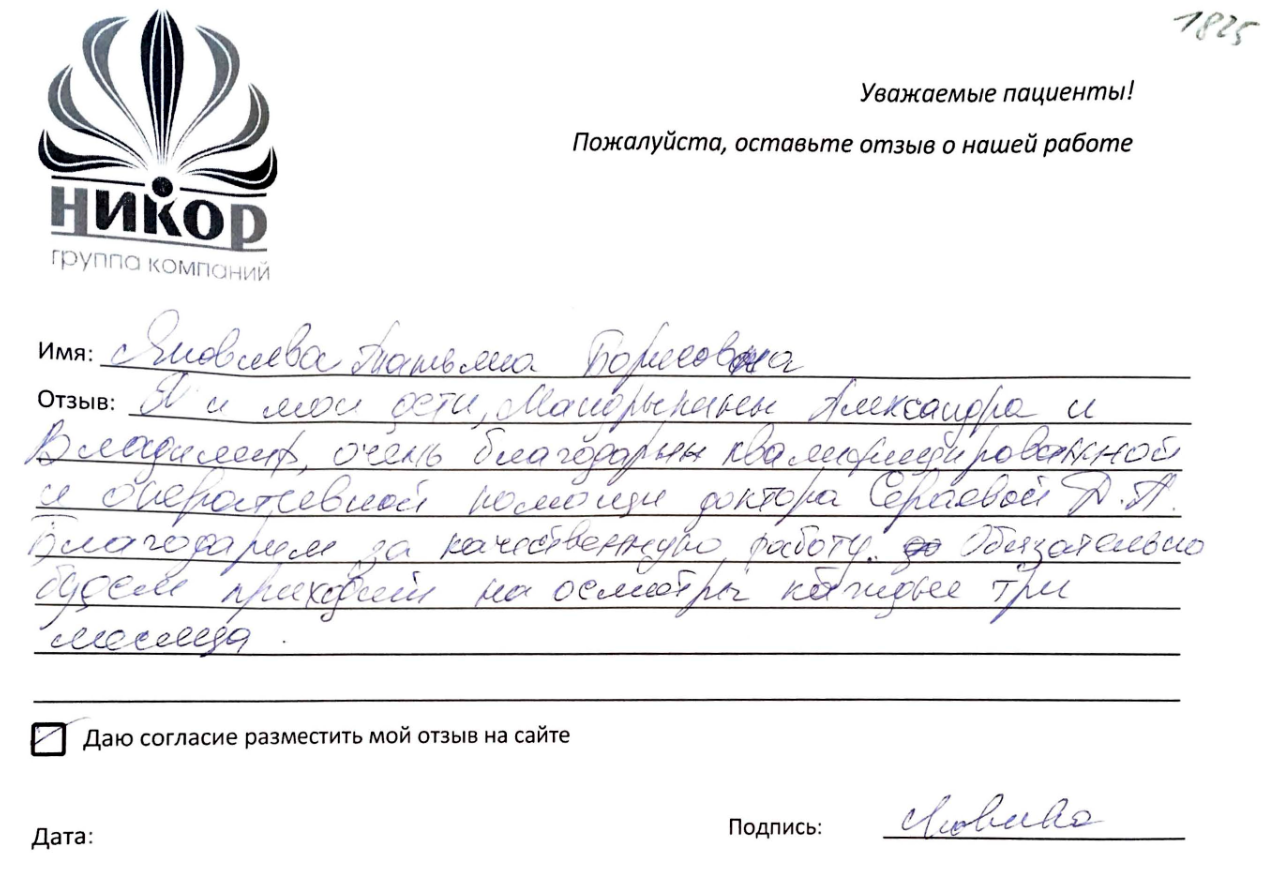 1825
НИКОР
группа компаний
Уважаемые пациенты!
Пожалуйста, оставьте отзыв о нашей работе
Имя: Яковлева Татьяна Борисовна
Отзыв: Я и мои дети, Александра и
Владимир, очень благодарны квалифицированной
и оперативной помощи доктора Сераевой Д.А.
Благодарим за качественную работу. Обязательно
будем приходить на осмотры каждые три
месяца.
Даю согласие разместить мой отзыв на сайте
Дата:
Подпись: Яковлева